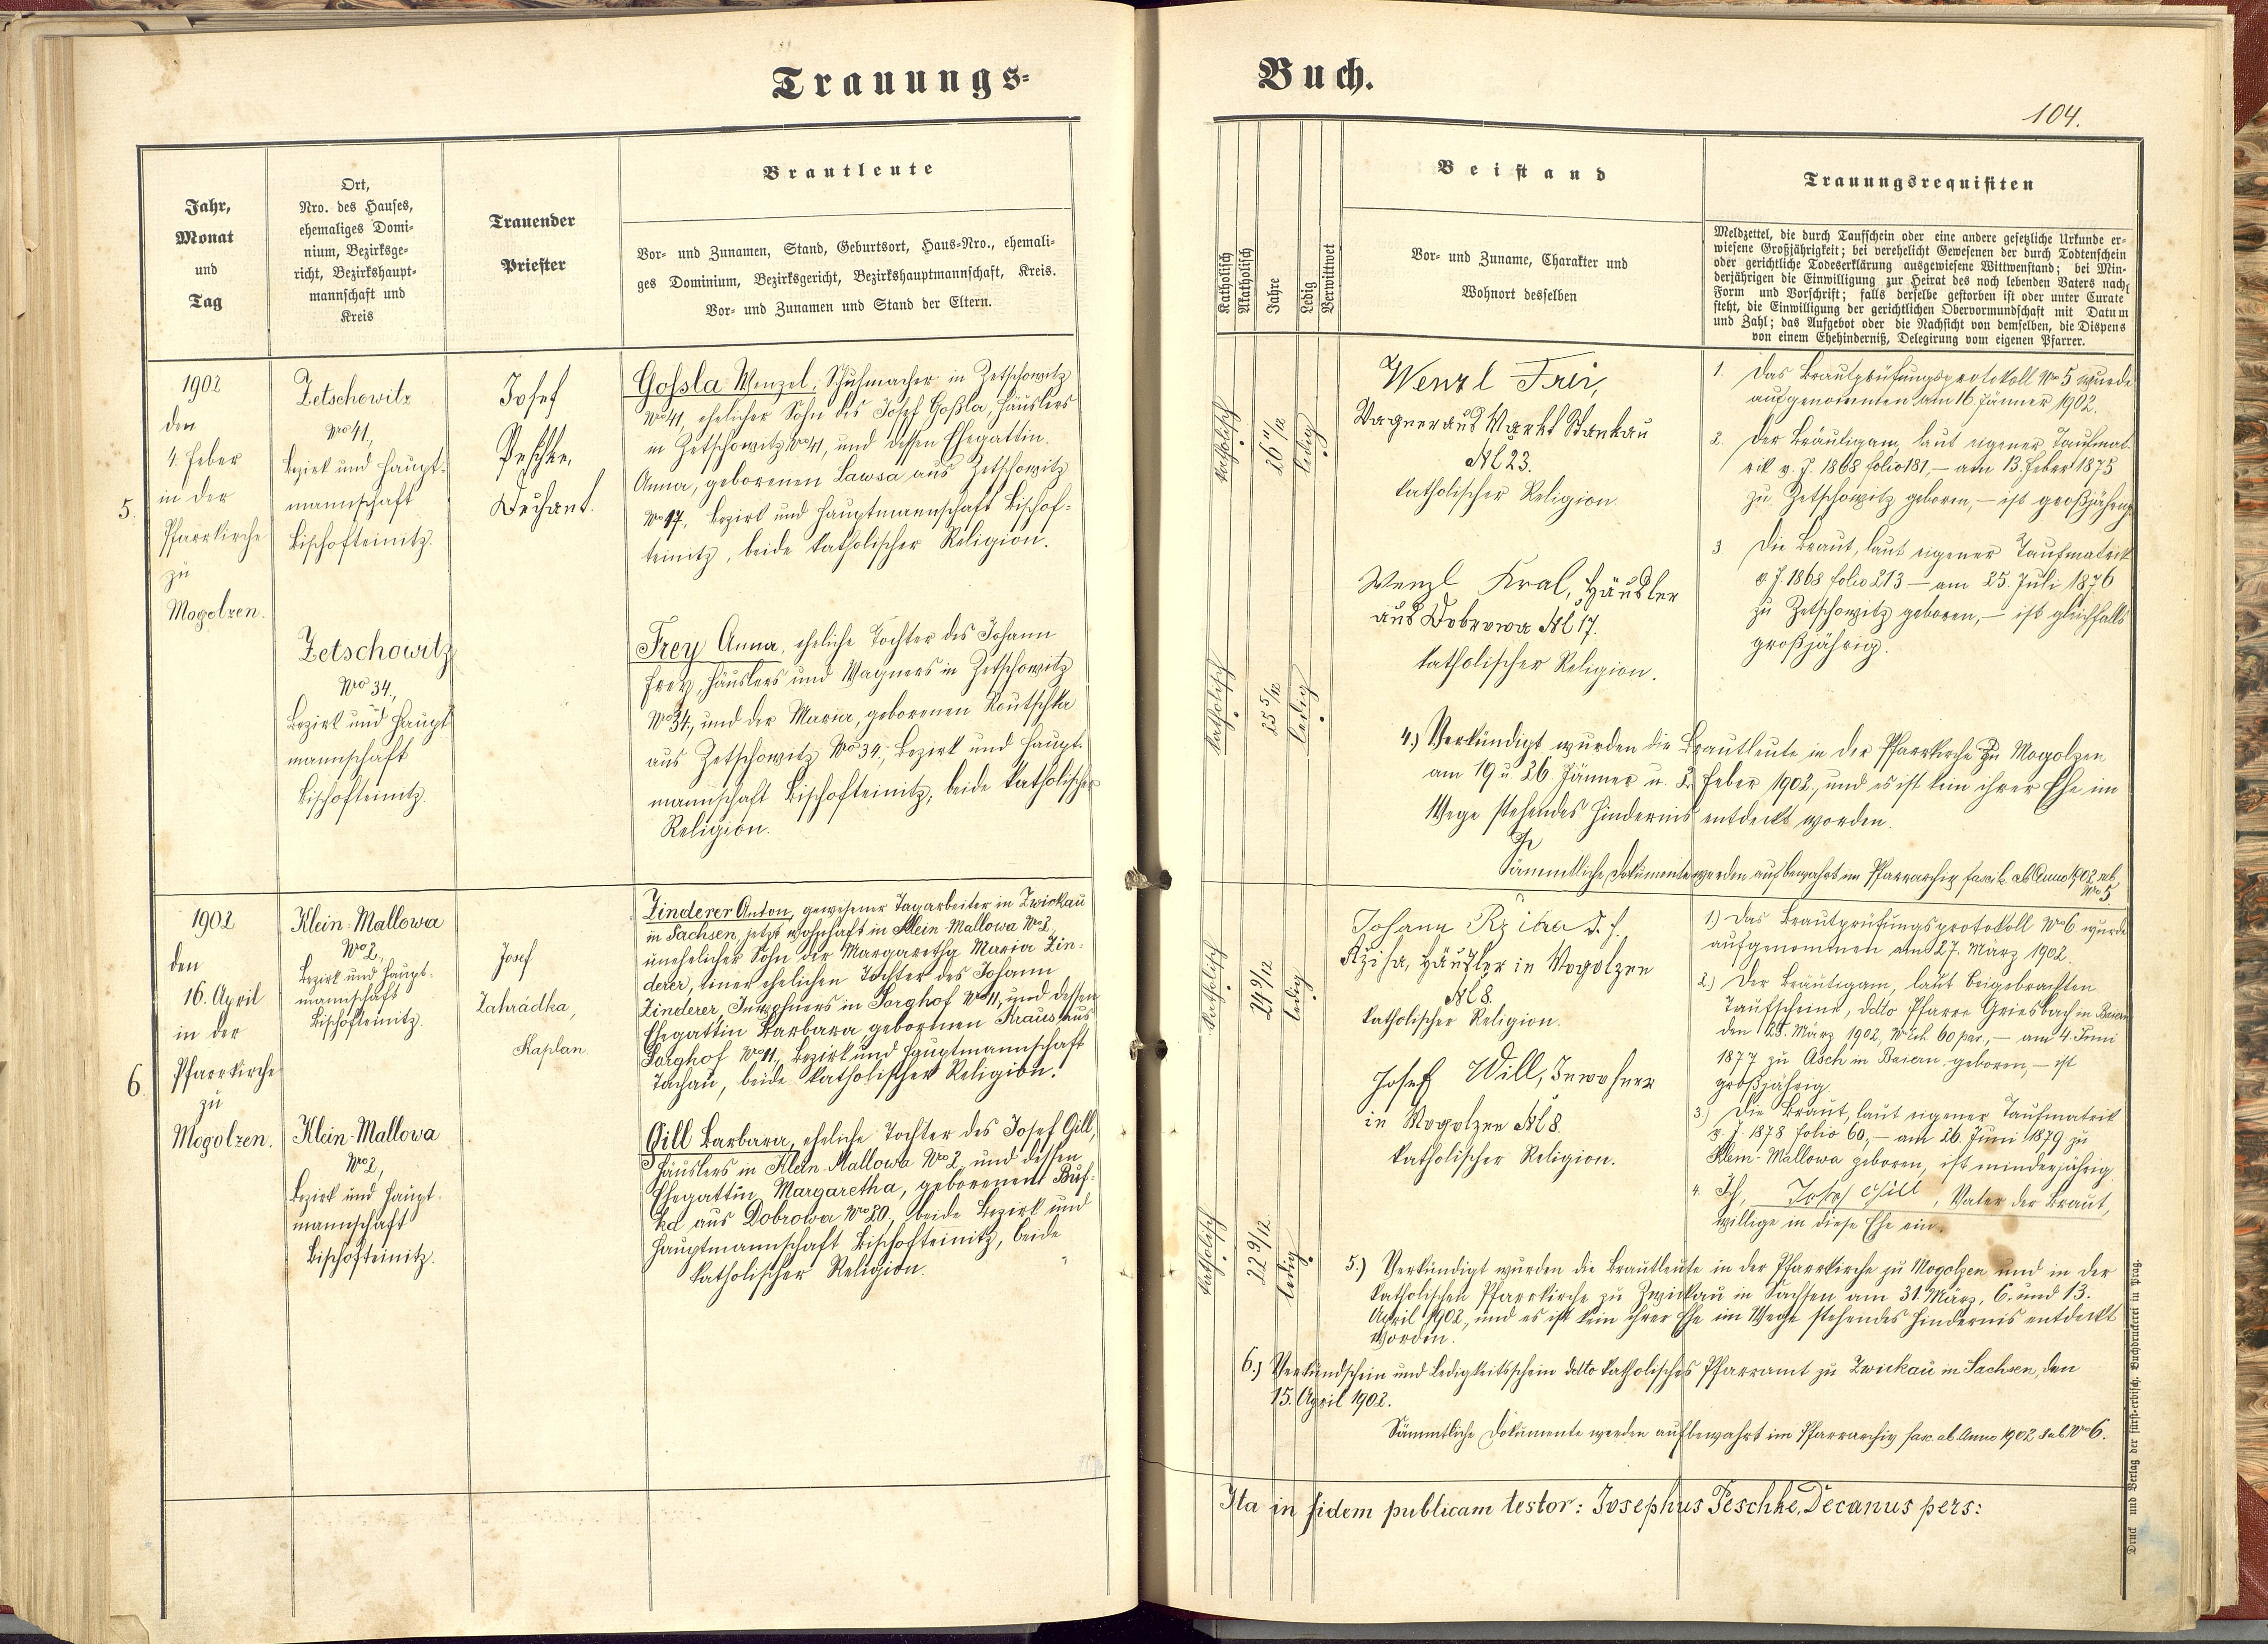 Trauungs-
Jahr,
Monat
und
Tag
Ort,
Nro. des Hauses,
ehemaliges Domi-
nium, Bezirksge-
richt, Bezirkshaupt-
mannschaft und
Kreis
Trauender
Priester
Brautleute
Vor- und Zunamen, Stand, Geburtsort, Haus-Nro., ehemali-
ges Dominium, Bezirksgericht, Bezirkshauptmannschaft, Kreis.
Vor- und Zunamen und Stand der Eltern.
5.
1902
den
4. Feber
in der
Pfarrkirche
zu
Mogolzen.
Zetschowitz
Nro 41,
Bezirk und Haupt-
mannschaft
Bischofteinitz.
Josef
Peschke,
Dechant.
Goßla Wenzel, Schuhmacher in Zetschowitz
Nro 41, ehelicher Sohn des Josef Goßla, Häuslers
in Zetschowitz Nro 41, und dessen Ehegattin
Anna, geborenen Lawsa aus Zetschowitz
Nro 17, Bezirk und Hauptmannschaft Bischof-
teinitz, beide katholischer Religion.
Zetschowitz
Nro 34,
Bezirk und Haupt-
mannschaft
Bischofteinitz.
Frey Anna, eheliche Tochter des Johann
Frey, Häuslers und Wagners in Zetschowitz
Nro 34, und der Maria, geborenen Koutschka
aus Zetschowitz Nro 34, Bezirk und Haupt-
mannschaft Bischofteinitz, beide katholischer
Religion.
6.
1902
den
16. April
in der
Pfarrkirche
zu
Mogolzen.
Klein-Mallowa
Nro 2,
Bezirk und Haupt-
mannschaft
Bischofteinitz.
Josef
Zahrádka,
Kaplan.
Zinderer Anton, gewesener Tagarbeiter in Zwickau
in Sachsen, jetzt wohnhaft in Klein-Mallowa Nro 2,
unehelicher Sohn der Margaretha Maria Zin-
derer, einer ehelichen Tochter des Johann
Zinderer, Inwohners in Sorghof Nro 11, und dessen
Ehegattin Barbara, gebornen Kraus aus
Sorghof Nro 11, Bezirk und Hauptmannschaft
Tachau, beide katholischer Religion.
Klein-Mallowa
Nro 2,
Bezirk und Haupt-
mannschaft
Bischofteinitz.
Gill Barbara, eheliche Tochter des Josef Gill,
Häuslers in Klein-Mallowa Nro 2, und dessen
Ehegattin Margaretha, geborenen Buf-
ka aus Dobrowa Nro 20, beide Bezirk und
Hauptmannschaft Bischofteinitz, beide
katholischer Religion.
Buch.
104.
Katholisch
Akatholisch
Jahre
Ledig
Verwittwet
Beistand
Vor- und Zuname, Charakter und
Wohnort desselben
Trauungsrequisiten
Meldzettel, die durch Taufschein oder eine andere gesetzliche Urkunde er-
wiesene Großjährigkeit; bei verehelicht Gewesenen der durch Todtenschein
oder gerichtliche Todeserklärung ausgewiesene Wittwenstand; bei Min-
derjährigen die Einwilligung zur Heirat des noch lebenden Vaters nach
Form und Vorschrift; falls derselbe gestorben ist oder unter Curate
steht, die Einwilligung der gerichtlichen Obervormundschaft mit Datum
und Zahl; das Aufgebot oder die Nachsicht von demselben, die Dispens
von einem Ehehinderniß, Delegirung vom eigenen Pfarrer.
katholisch
26 11/12
ledig
Wenzl Frei,
Wagner aus Markt Stankau
Nr 23.
katholischer Religion.
Wenzl Kral, Häusler
aus Dobrowa Nr 17.
katholischer Religion.
katholisch
25 5/12
ledig
1. Das Brautprüfungsprotokoll Nro 5 wurde
aufgenommen am 16 Jänner 1902.
2. Der Bräutigam, laut eigener Taufmat-
rik v. J. 1868 folio 181, – am 13. Feber 1875
zu Zetschowitz geboren, – ist großjährig.
3. Die Braut, laut eigener Taufmatrik
v. J. 1868 folio 213 – am 25. Juli 1876
zu Zetschowitz geboren, – ist gleichfalls
großjährig.
4.) Verkündigt wurden die Brautleute in der Pfarrkirche zu Mogolzen
am 19 u. 26 Jänner u. 2. Feber 1902, und es ist kein ihrer Ehe im
Wege stehendes Hindernis entdeckt worden.
Sämmtliche Dokumente werden aufbewahrt im Pfarrarchiv fascik. ab Anno 1902 sub
Nro 5
katholisch
24 9/12
ledig
Johann
Rziha, Häusler in Mogolzen
Nr 8.
katholischer Religion.
Josef Will, Inwohner
in Mogolzen Nr 8.
katholischer Religion.
katholisch
22 9/12
ledig
1) Das Brautprüfungsprotokoll Nro 6 wurde
aufgenommen am 27. März 1902.
2.) Der Bräutigam, laut beigebrachten
Taufscheine, ddto Pfarre Griesbach in Baiern
den 25. März 1902, Nro Exh. 60 par., – am 4. Juni
1877 zu Asch in Baiern geboren, – ist
großjährig.
3.) Die Braut, laut eigener Taufmatrik
v. J. 1878 folio 60, – am 26. Juni 1879 zu
Klein-Mallowa geboren, ist minderjährig.
4. Ich, Josef Gill, Vater der Braut,
willige in diese Ehe ein.
5.) Verkündigt wurden die Brautleute in der Pfarrkirche zu Mogolzen und in der
katholischen Pfarrkirche zu Zwickau in Sachsen am 31. März, 6. und 13.
April 1902, und es ist kein ihrer Ehe im Wege stehendes Hindernis entdeckt
worden.
6.) Verkündschein und Ledigkeitsschein ddto katholisches Pfarramt zu Zwickau in Sachsen, den
15. April 1902.
Sämmtliche Dokumente werden aufbewahrt im Pfarrarchiv fasc. ab Anno 1902 sub Nro 6.
Ita in fidem publicam testor: Josephus Peschke, Decanus pers:
Druck und Verlag der fürst-erzbisch. Buchdruckerei in Prag.